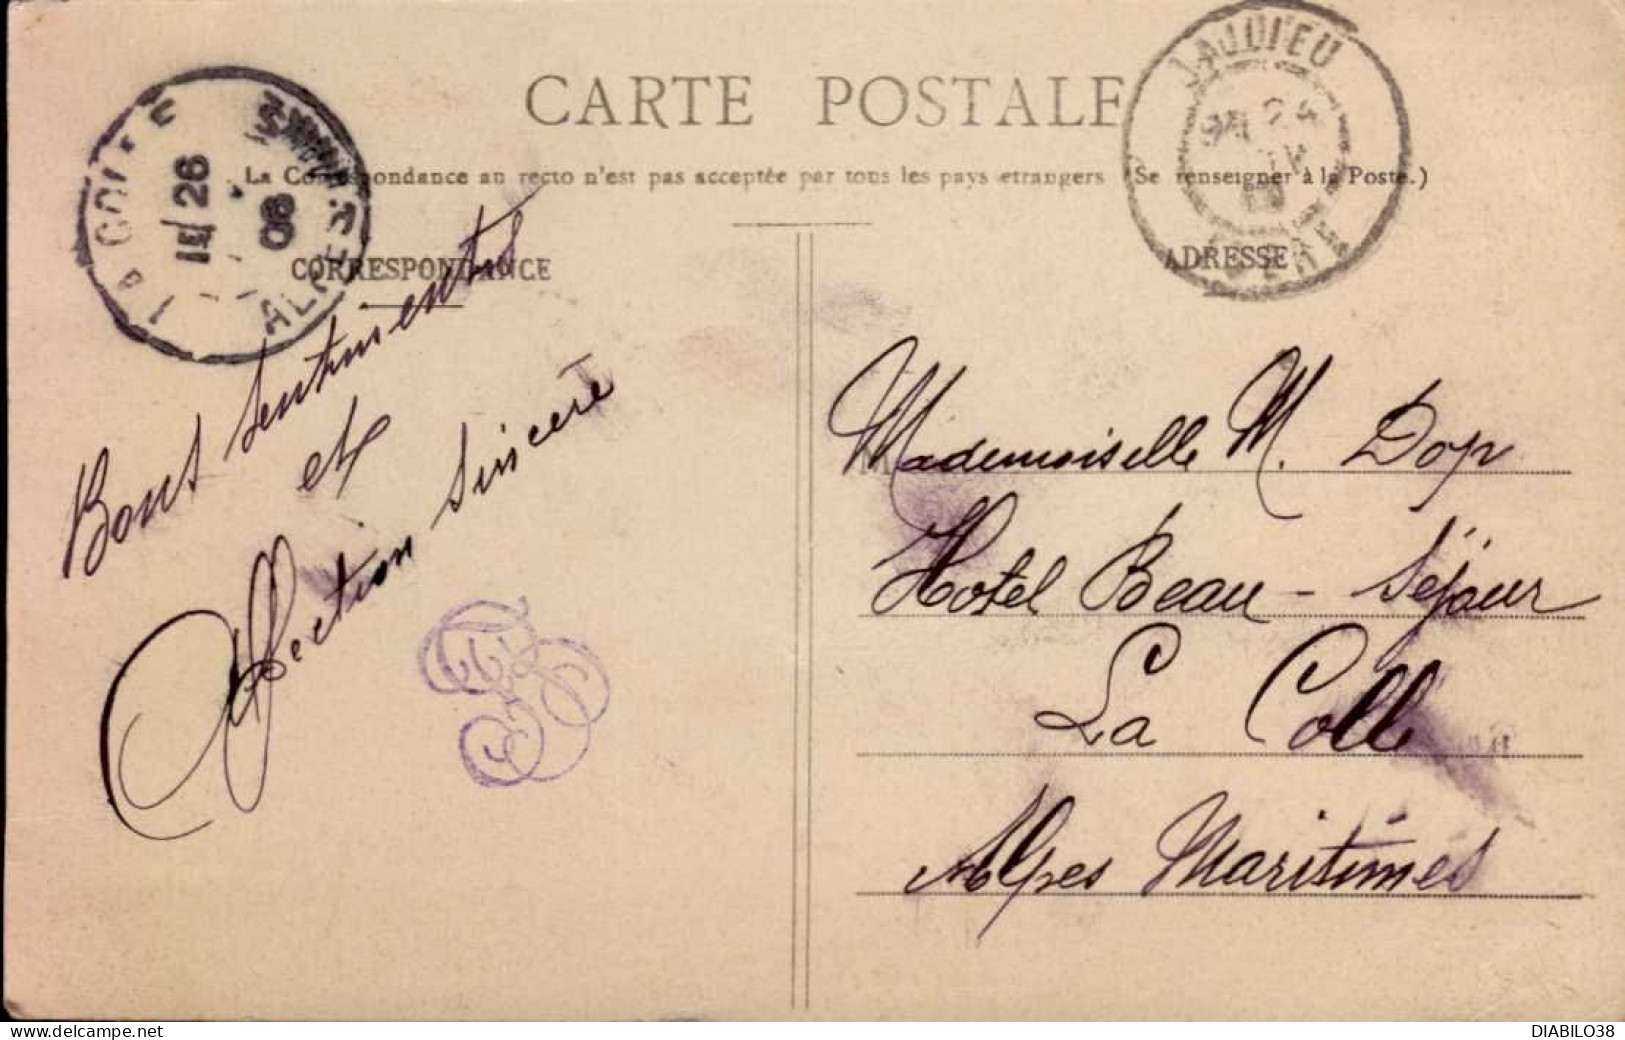 CARTE POSTALE
La Correspondance au recto n'est pas acceptée par tous les pays etrangers (Se renseigner à la Poste.)
CORRESPONDANCE
ADRESSE
LA COLLE
26
08
ALPES MARIMES
JALLIEU
24
ISERE
Bons sentiments
et
affection sincere
Mademoiselle M. Dop
Hotel Beau - Séjour
La Colle
Alpes Maritimes
www.delcampe.net
DIABILO38